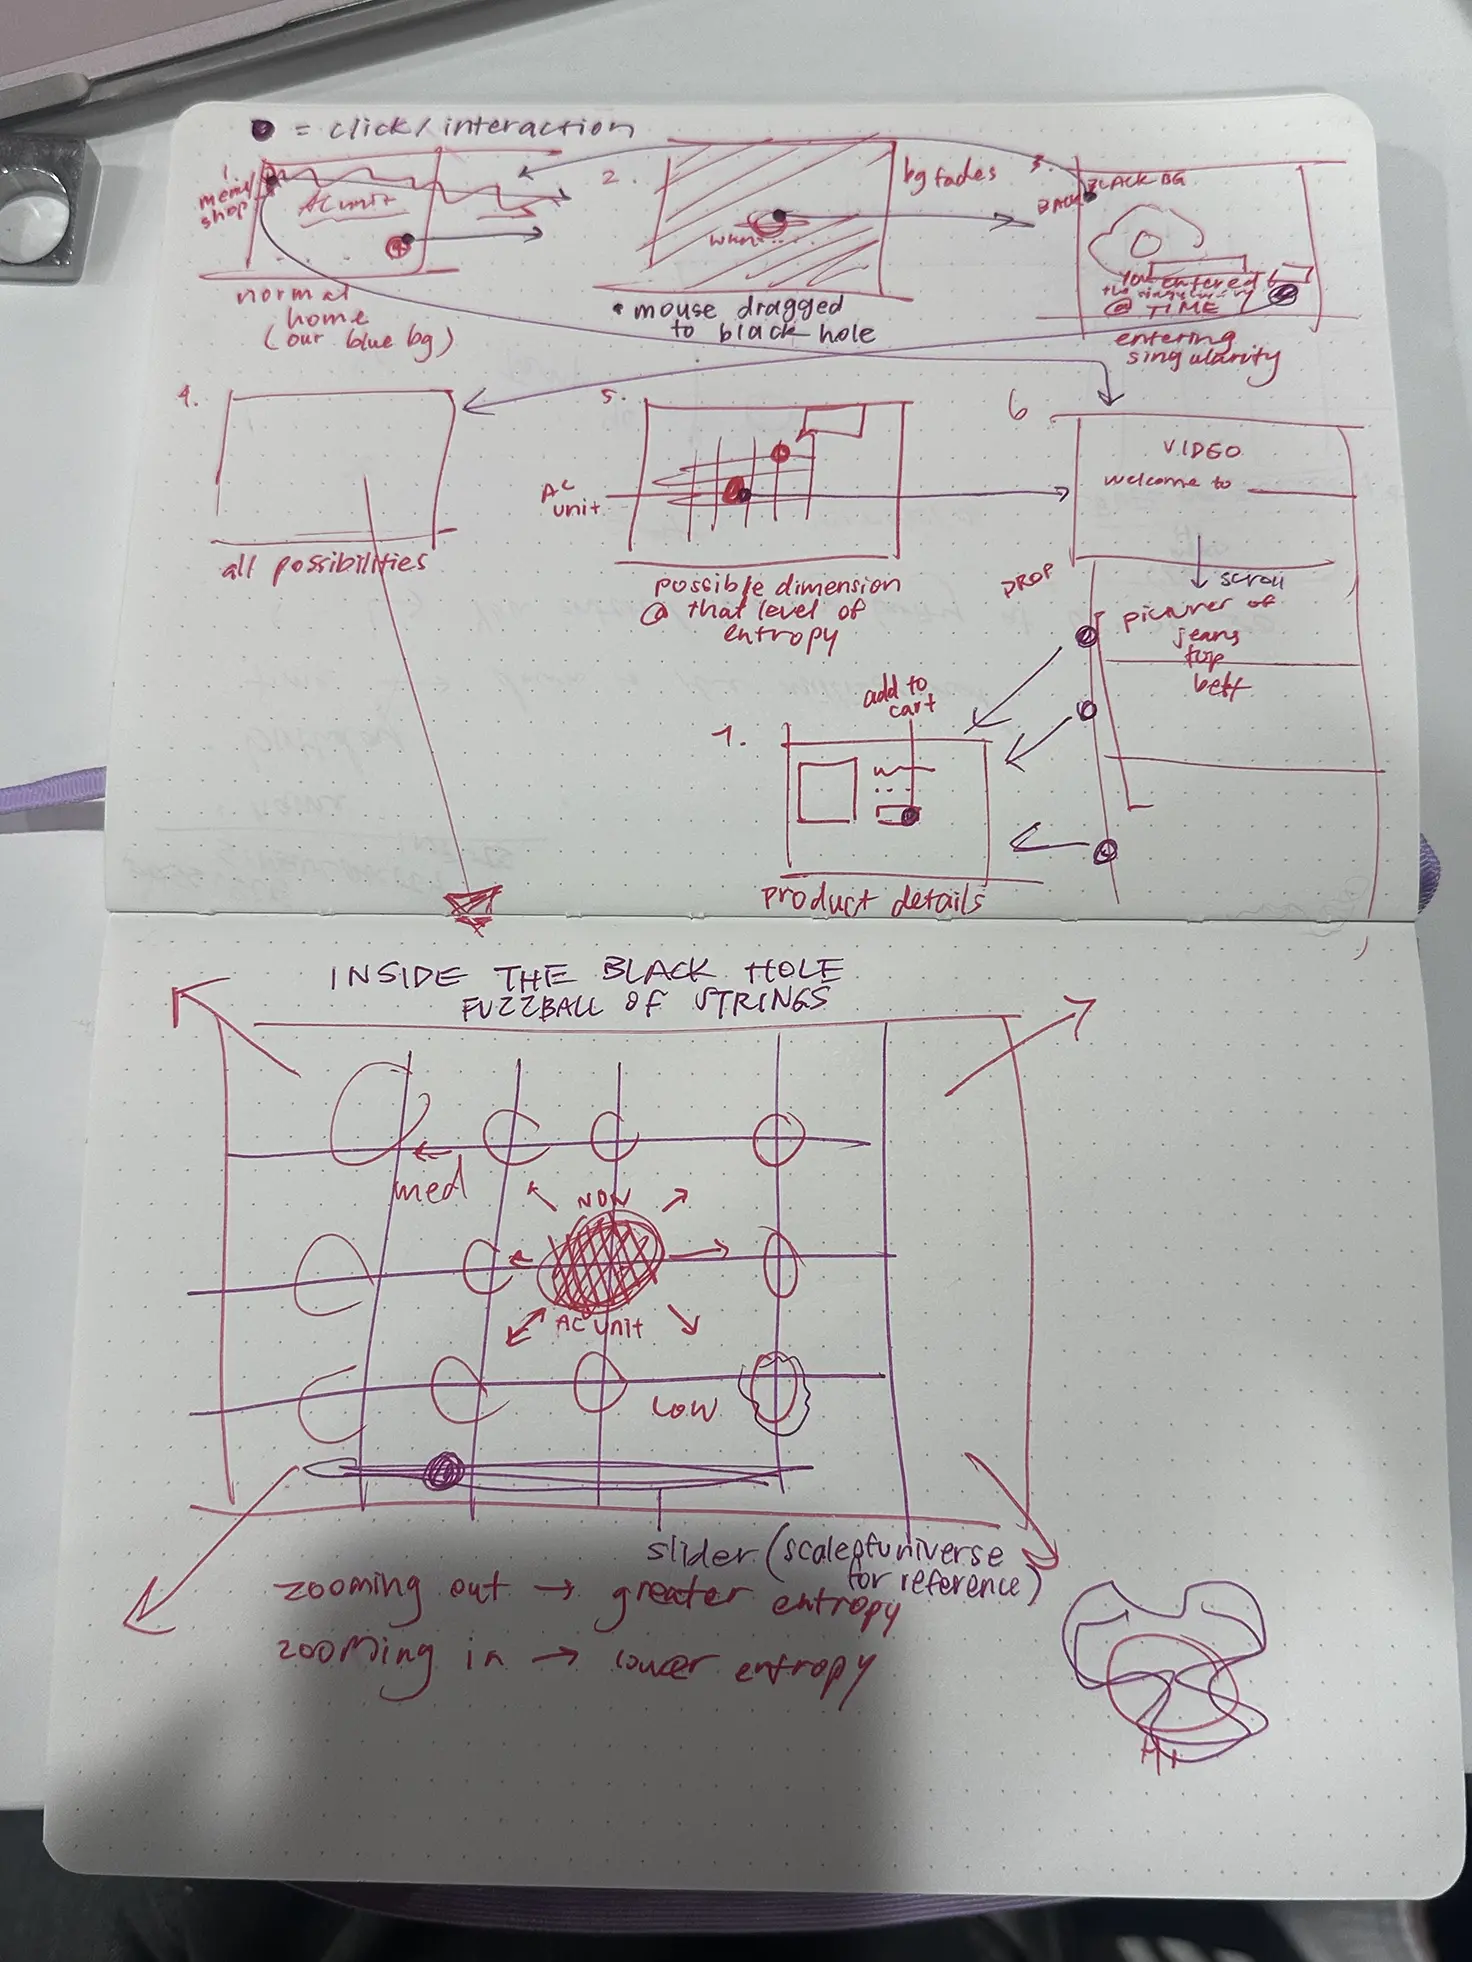 = click/interaction
1.
menu/
shop
AC unit
normal
home
(our blue bg)
2.
bg fades
• mouse dragged
to black hole
3.
BACK
BLACK BG
You entered
the singularity
@ TIME
entering
singularity
4.
all possibilities
5.
AC
unit
possible dimension
@ that level of
entropy
6
VIDEO
welcome to
scroll
DROP
picture of
jeans
top
belt
7.
add to
cart
product details
INSIDE THE BLACK HOLE
FUZZBALL OF STRINGS
med
NOW
AC unit
LOW
slider (scale of universe
for reference)
zooming out → greater entropy
zooming in → lower entropy